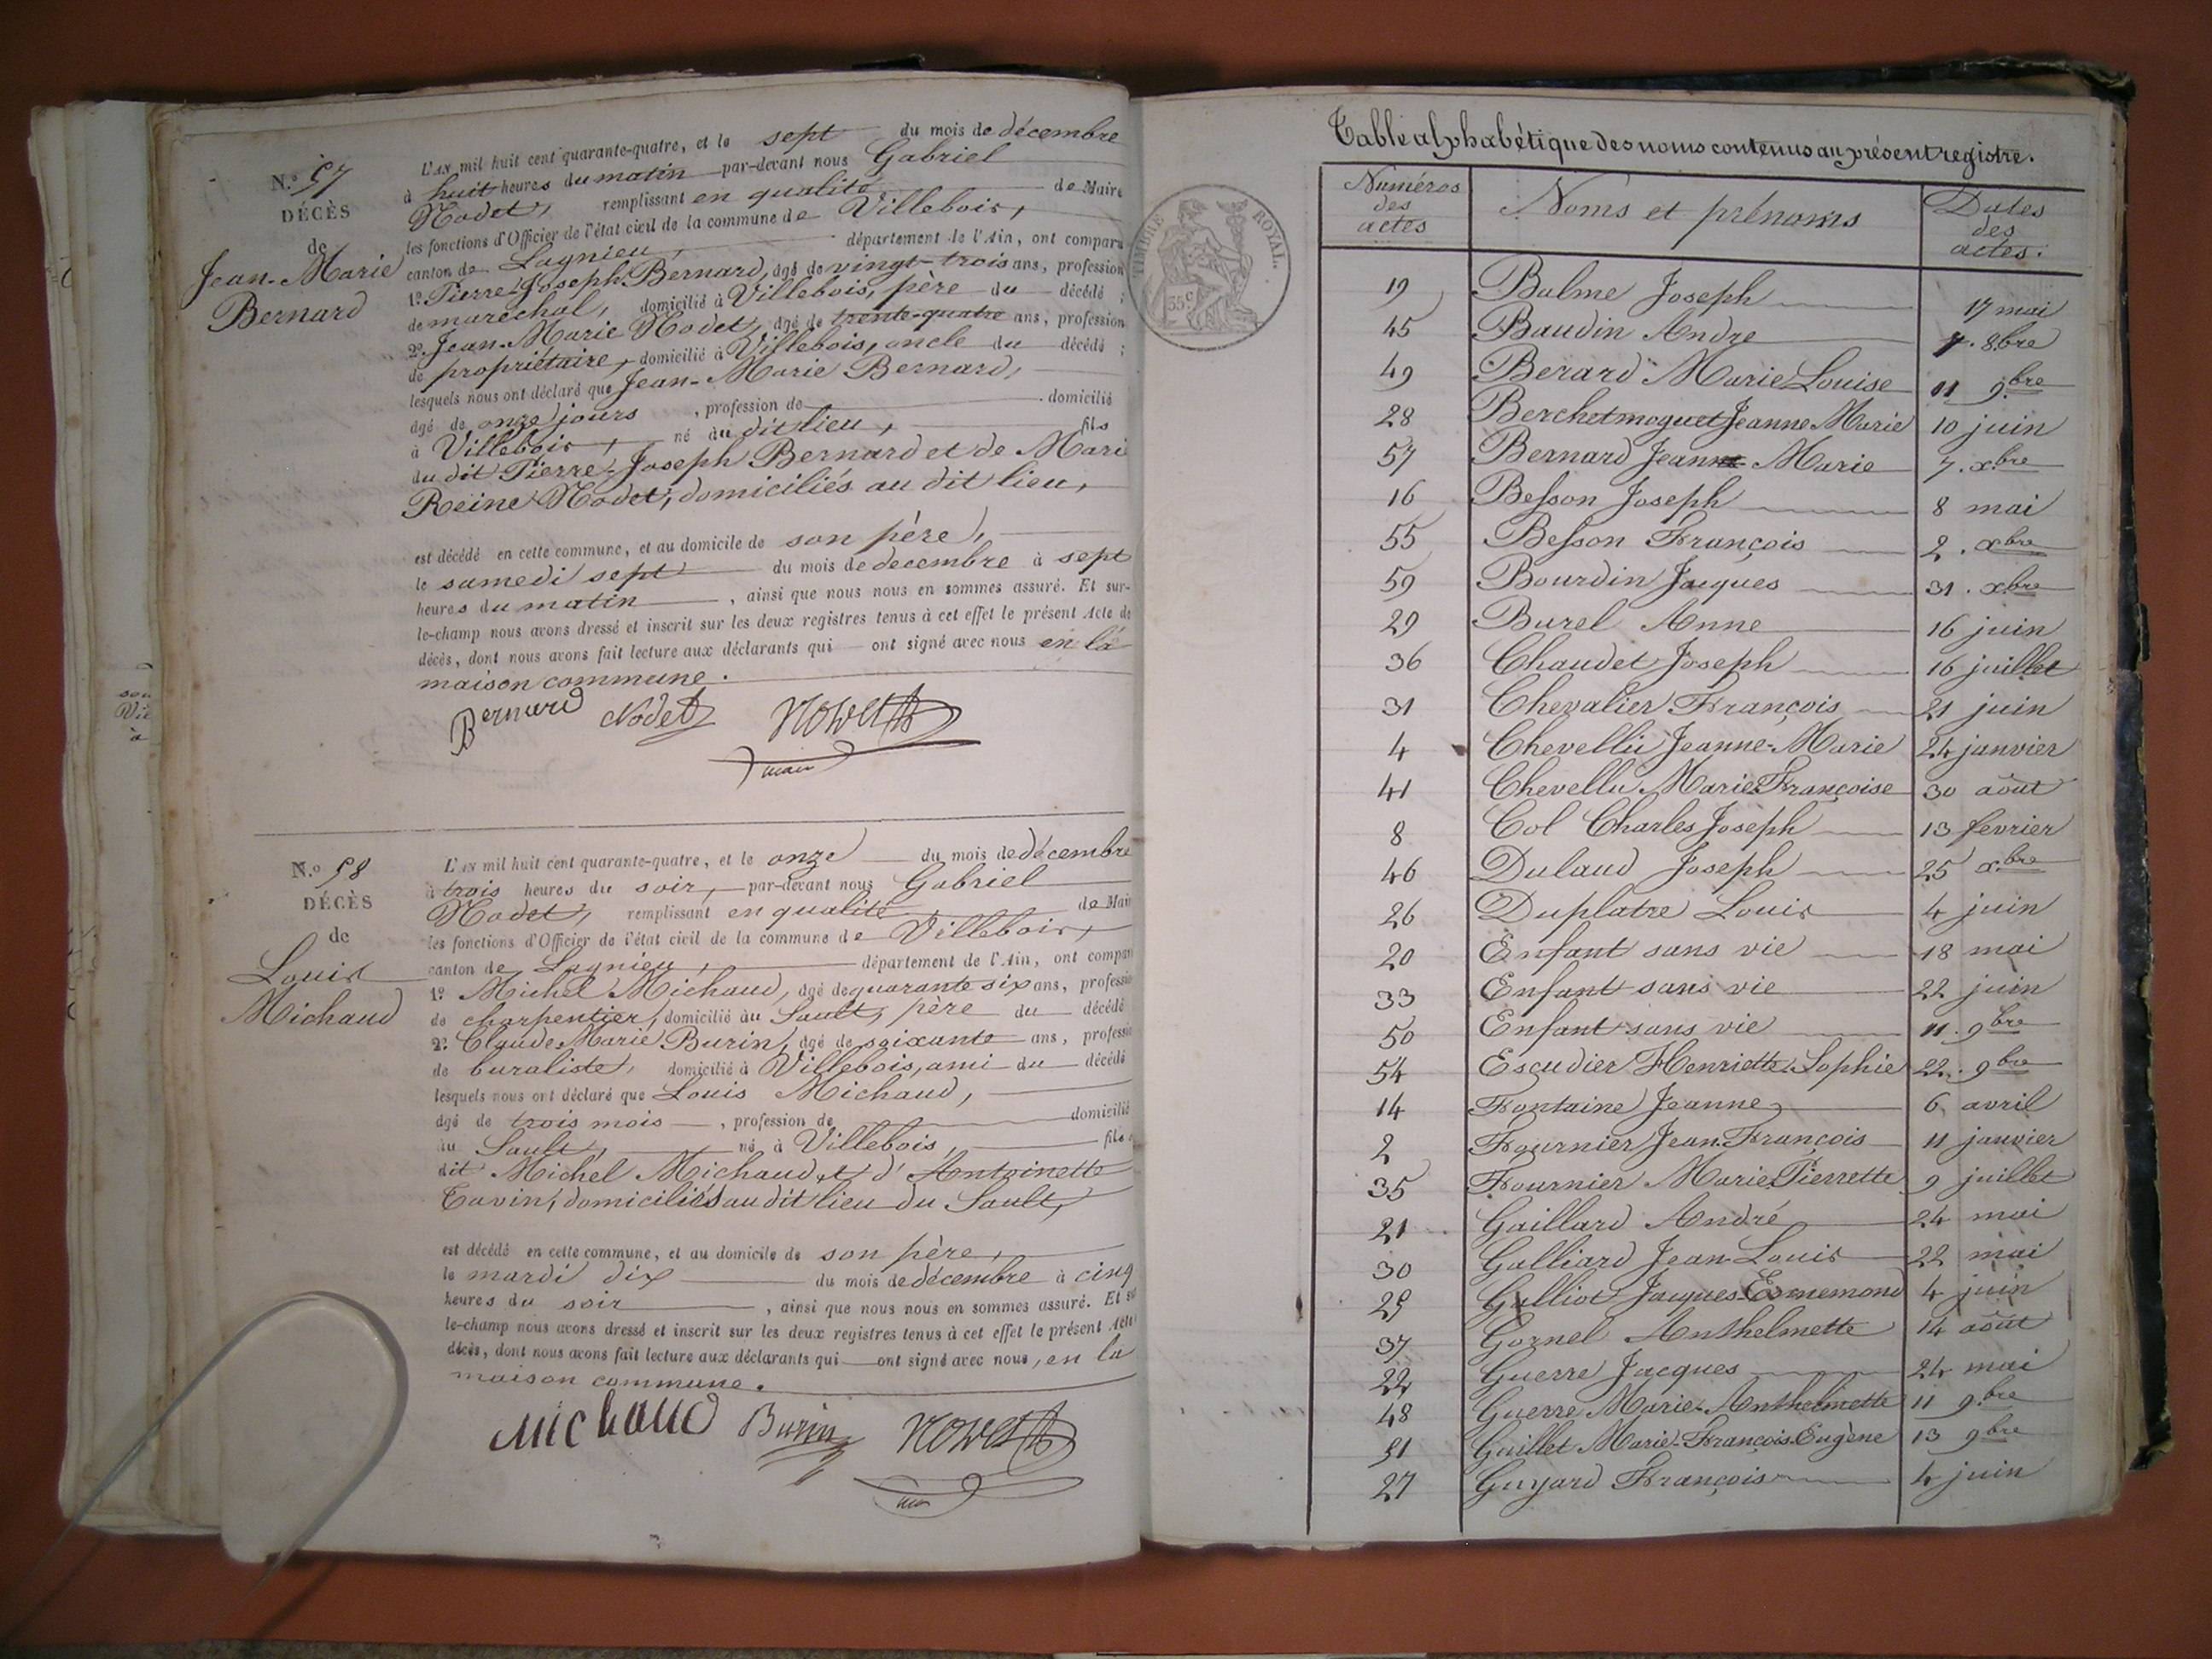 N.o 57
DÉCÈS
de
Jean-Marie
Bernard
L'AN mil huit cent quarante-quatre, et le sept du mois de décembre
à huit heures du matin par-devant nous Gabriel
Nodet, remplissant en qualité de Maire
les fonctions d'Officier de l'état civil de la commune de Villebois,
canton de Lagnieu, département de l'Ain, ont comparu
1o. Pierre-Joseph Bernard, âgé de vingt-trois ans, profession
de maréchal, domicilié à Villebois, père du décédé ;
2o. Jean-Marie Nodet, âgé de trente-quatre ans, profession
de propriétaire, domicilié à Villebois, oncle du décédé ;
lesquels nous ont déclaré que Jean-Marie Bernard,
âgé de onze jours , profession de domicilié
à Villebois, né au dit lieu, fils
du dit Pierre-Joseph Bernard et de Mari
Reine Nodet, domiciliés au dit lieu,
est décédé en cette commune, et au domicile de son père,
le samedi sept du mois de decembre à sept
heures du matin , ainsi que nous nous en sommes assuré. Et sur-
le-champ nous avons dressé et inscrit sur les deux registres tenus à cet effet le présent Acte de
décès, dont nous avons fait lecture aux déclarants qui ont signé avec nous en la
maison commune.
Bernard Nodet Nodet
maire
N.o 58
DÉCÈS
de
Louis
Michaud
L'AN mil huit cent quarante-quatre, et le onze du mois de décembre
à trois heures du soir, par-devant nous Gabriel
Nodet, remplissant en qualité de Mair
les fonctions d'Officier de l'état civil de la commune de Villebois,
canton de Lagnieu, département de l'Ain, ont compar
1o. Michel Michaud, âgé de quarante six ans, professio
de charpentier, domicilié au Sault, père du décédé
2o. Claude-Marie Burin, âgé de soixante ans, professio
de buraliste, domicilié à Villebois, ami du décédé
lesquels nous ont déclaré que Louis Michaud,
âgé de trois mois , profession de domicilié
au Sault, né à Villebois, fils
dit Michel Michaud et d'Antoinette
Tavin, domiciliés au dit lieu du Sault,
est décédé en cette commune, et au domicile de son père,
le mardi dix du mois de décembre à cinq
heures du soir , ainsi que nous nous en sommes assuré. Et su
le-champ nous avons dressé et inscrit sur les deux registres tenus à cet effet le présent Acte
décès, dont nous avons fait lecture aux déclarants qui ont signé avec nous, en la
maison commune.
Michaud Burin Nodet
TIMBRE ROYAL.
35c
Table alphabétique des noms contenus au présent registre.
Numéros des actes Noms et prénoms Dates des actes.
19 Balme Joseph 17 mai
45 Baudin Andre 7. 8bre
49 Berard Marie Louise 11 9bre
28 Berchetmoguet Jeanne Marie 10 juin
57 Bernard Jean Marie 7. xbre
16 Besson Joseph 8 mai
55 Besson François 2. xbre
59 Bourdin Jacques 31. xbre
29 Burel Anne 16 juin
36 Chaudet Joseph 16 juillet
31 Chevalier François 21 juin
4 Chevellu Jeanne-Marie 24 janvier
41 Chevellu Marie Françoise 30 août
8 Col Charles Joseph 13 fevrier
46 Dulaud Joseph 25 xbre
26 Duplatre Louis 4 juin
20 Enfant sans vie 18 mai
33 Enfant sans vie 22 juin
50 Enfant sans vie 11. 9bre
54 Escudier Henriette-Sophie 22. 9bre
14 Fontaine Jeanne 6 avril
2 Fournier Jean-François 11 janvier
35 Fournier Marie Pierrette 9 juillet
21 Gaillard André 24 mai
30 Galliard Jean-Louis 22 mai
25 Galliot Jacques-Esmemond 4 juin
37 Gornel Anthelmette 14 août
22 Guerre Jacques 24 mai
48 Guerre Marie-Anthelmette 11 9bre
51 Guillet Marie-François-Eugène 13 9bre
27 Guyard François 4 juin